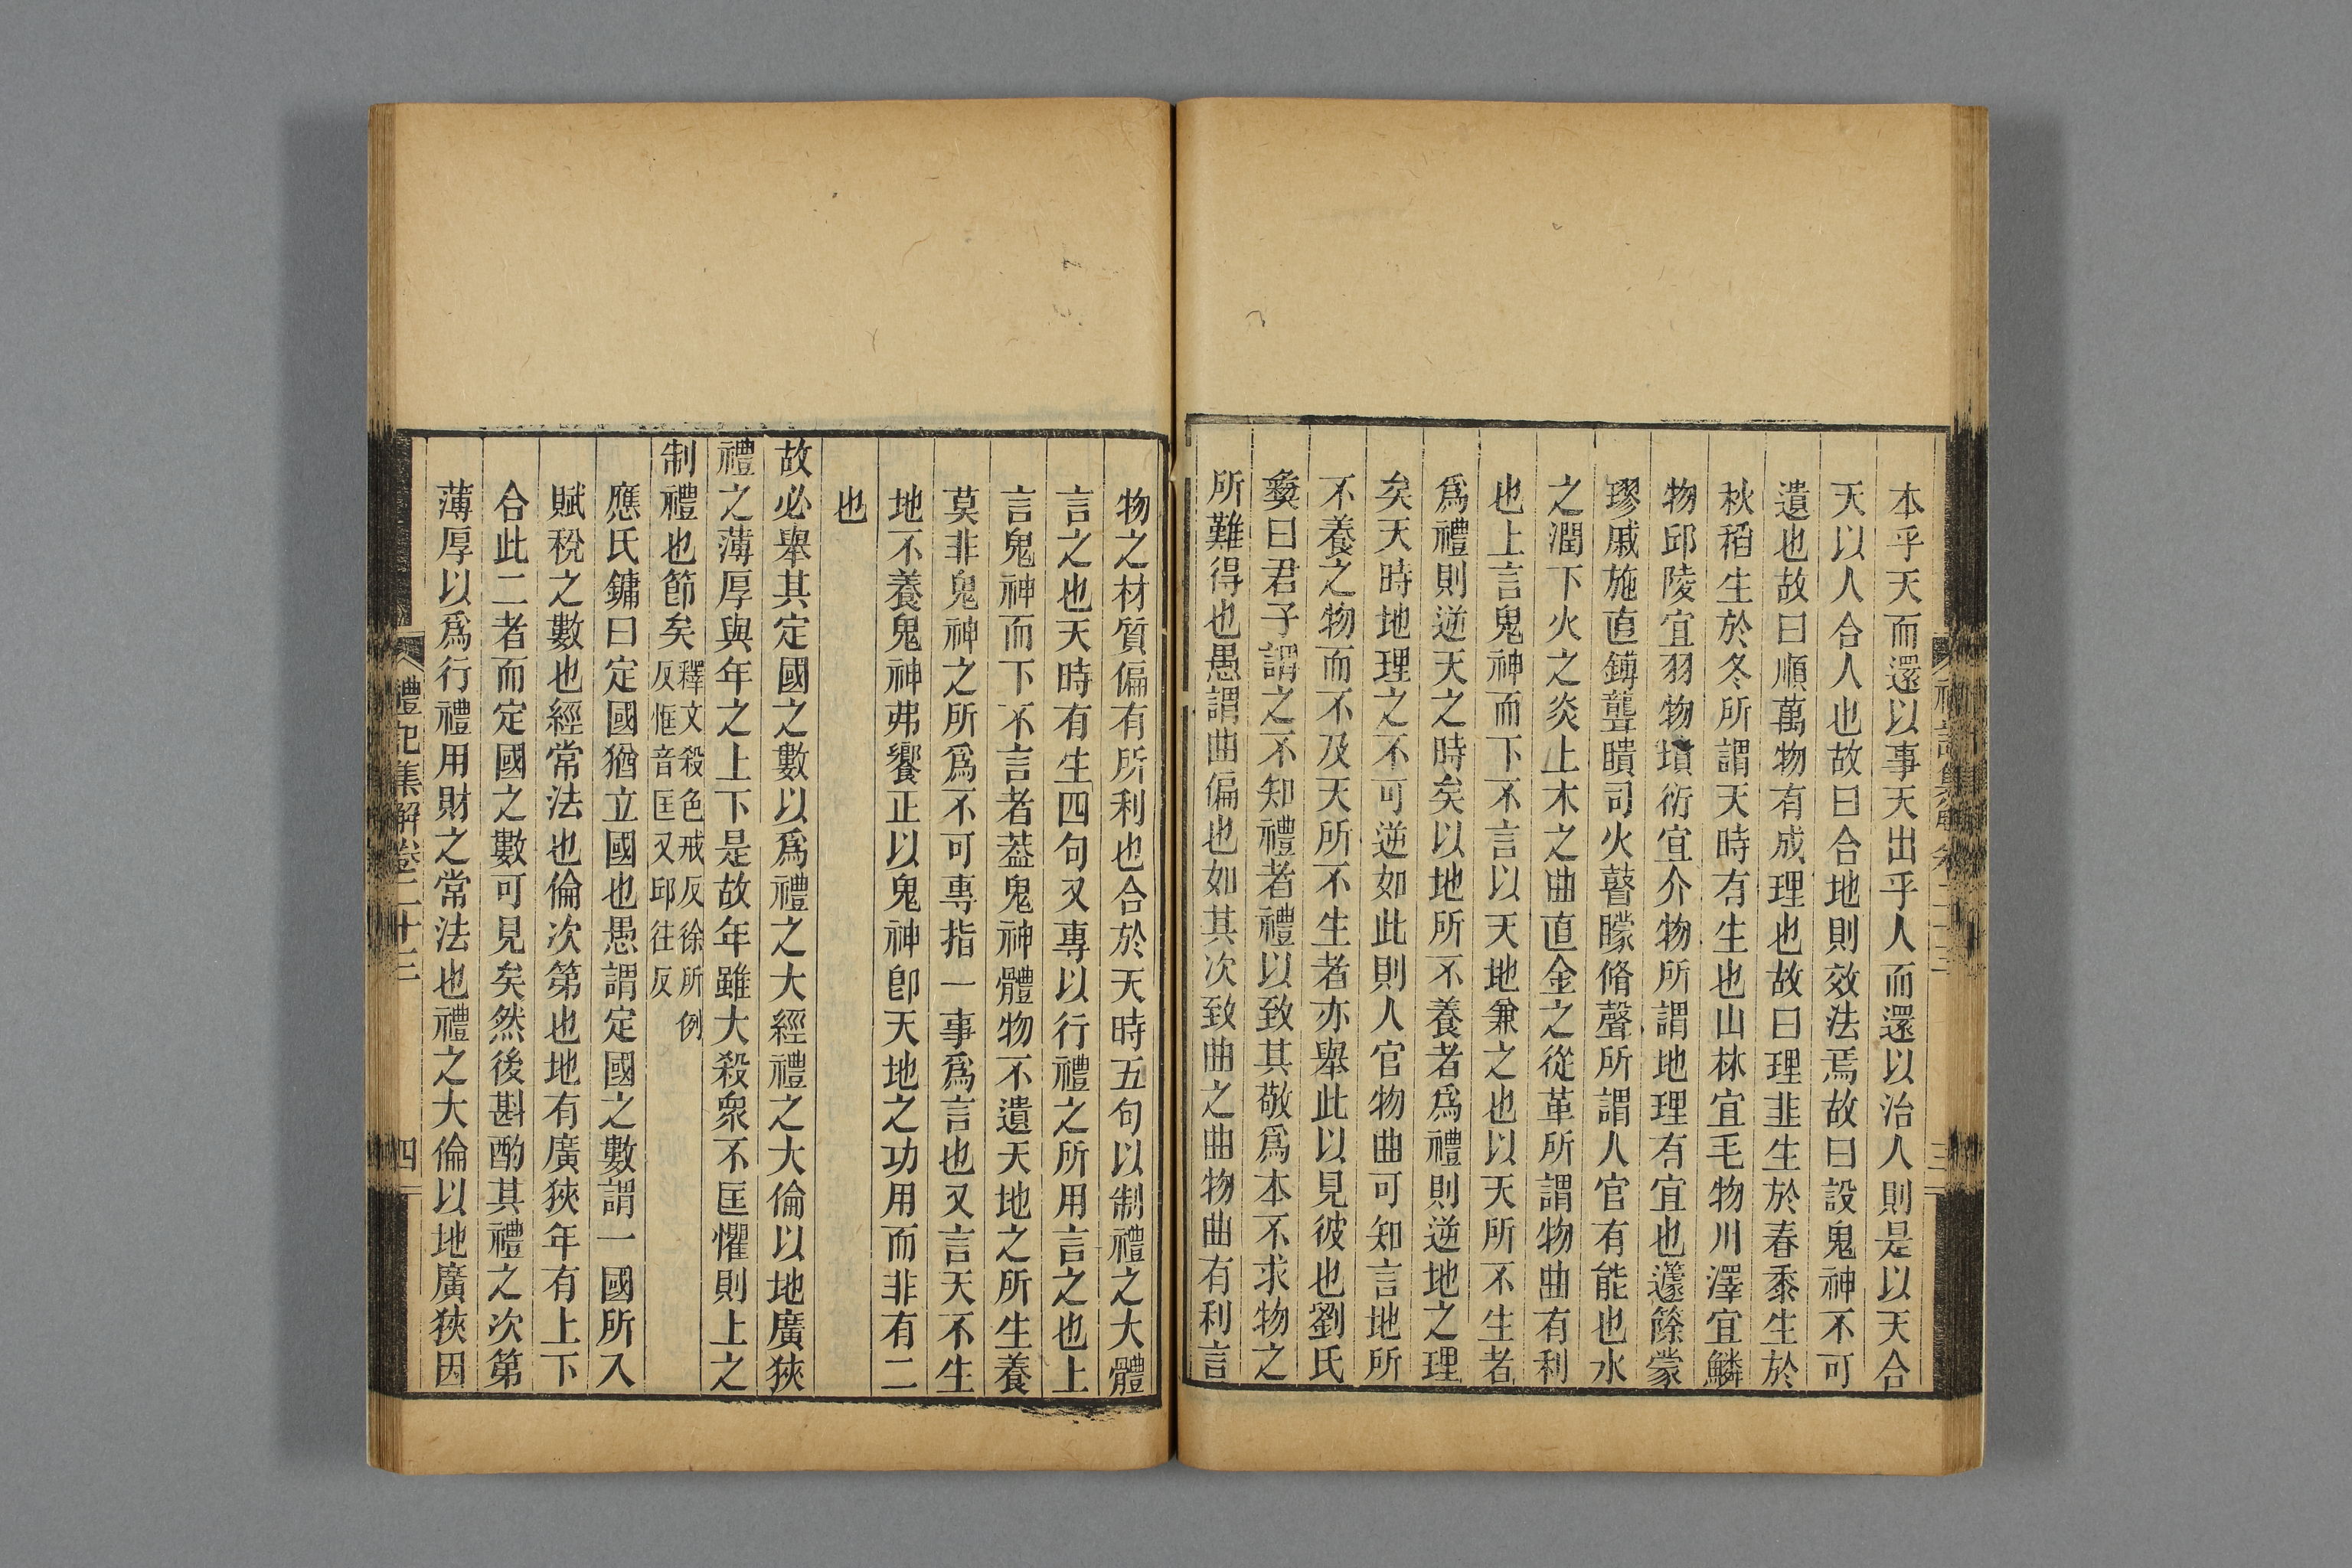 本乎天而還以事天出乎人而還以治人則是以天合
天以人合人也故曰合地則效法焉故曰設鬼神不可
遺也故曰順萬物有成理也故曰理韭生於春黍生於
秋稻生於冬所謂天時有生也山林宜毛物川澤宜鱗
物邱陵宜羽物墳衍宜介物所謂地理有宜也籧篨蒙
璆戚施直鎛聾聵司火瞽矇脩聲所謂人官有能也水
之潤下火之炎上木之曲直金之從革所謂物曲有利
也上言鬼神而下不言以天地兼之也以天所不生者
爲禮則逆天之時矣以地所不養者爲禮則逆地之理
矣天時地理之不可逆如此則人官物曲可知言地所
不養之物而不及天所不生者亦舉此以見彼也劉氏
彝曰君子謂之不知禮者禮以致其敬爲本不求物之
所難得也愚謂曲偏也如其次致曲之曲物曲有利言
物之材質偏有所利也合於天時五句以制禮之大體
言之也天時有生四句又專以行禮之所用言之也上
言鬼神而下不言者葢鬼神體物不遺天地之所生養
莫非鬼神之所爲不可專指一事爲言也又言天不生
地不養鬼神弗饗正以鬼神卽天地之功用而非有二
也
故必舉其定國之數以爲禮之大經禮之大倫以地廣狹
禮之薄厚與年之上下是故年雖大殺衆不匡懼則上之
制禮也節矣釋文殺色戒反徐所例
反恇音匡又邱往反
應氏鏞曰定國猶立國也愚謂定國之數謂一國所入
賦稅之數也經常法也倫次第也地有廣狹年有上下
合此二者而定國之數可見矣然後斟酌其禮之次第
薄厚以爲行禮用財之常法也禮之大倫以地廣狹因
禮記集解卷二十三
四